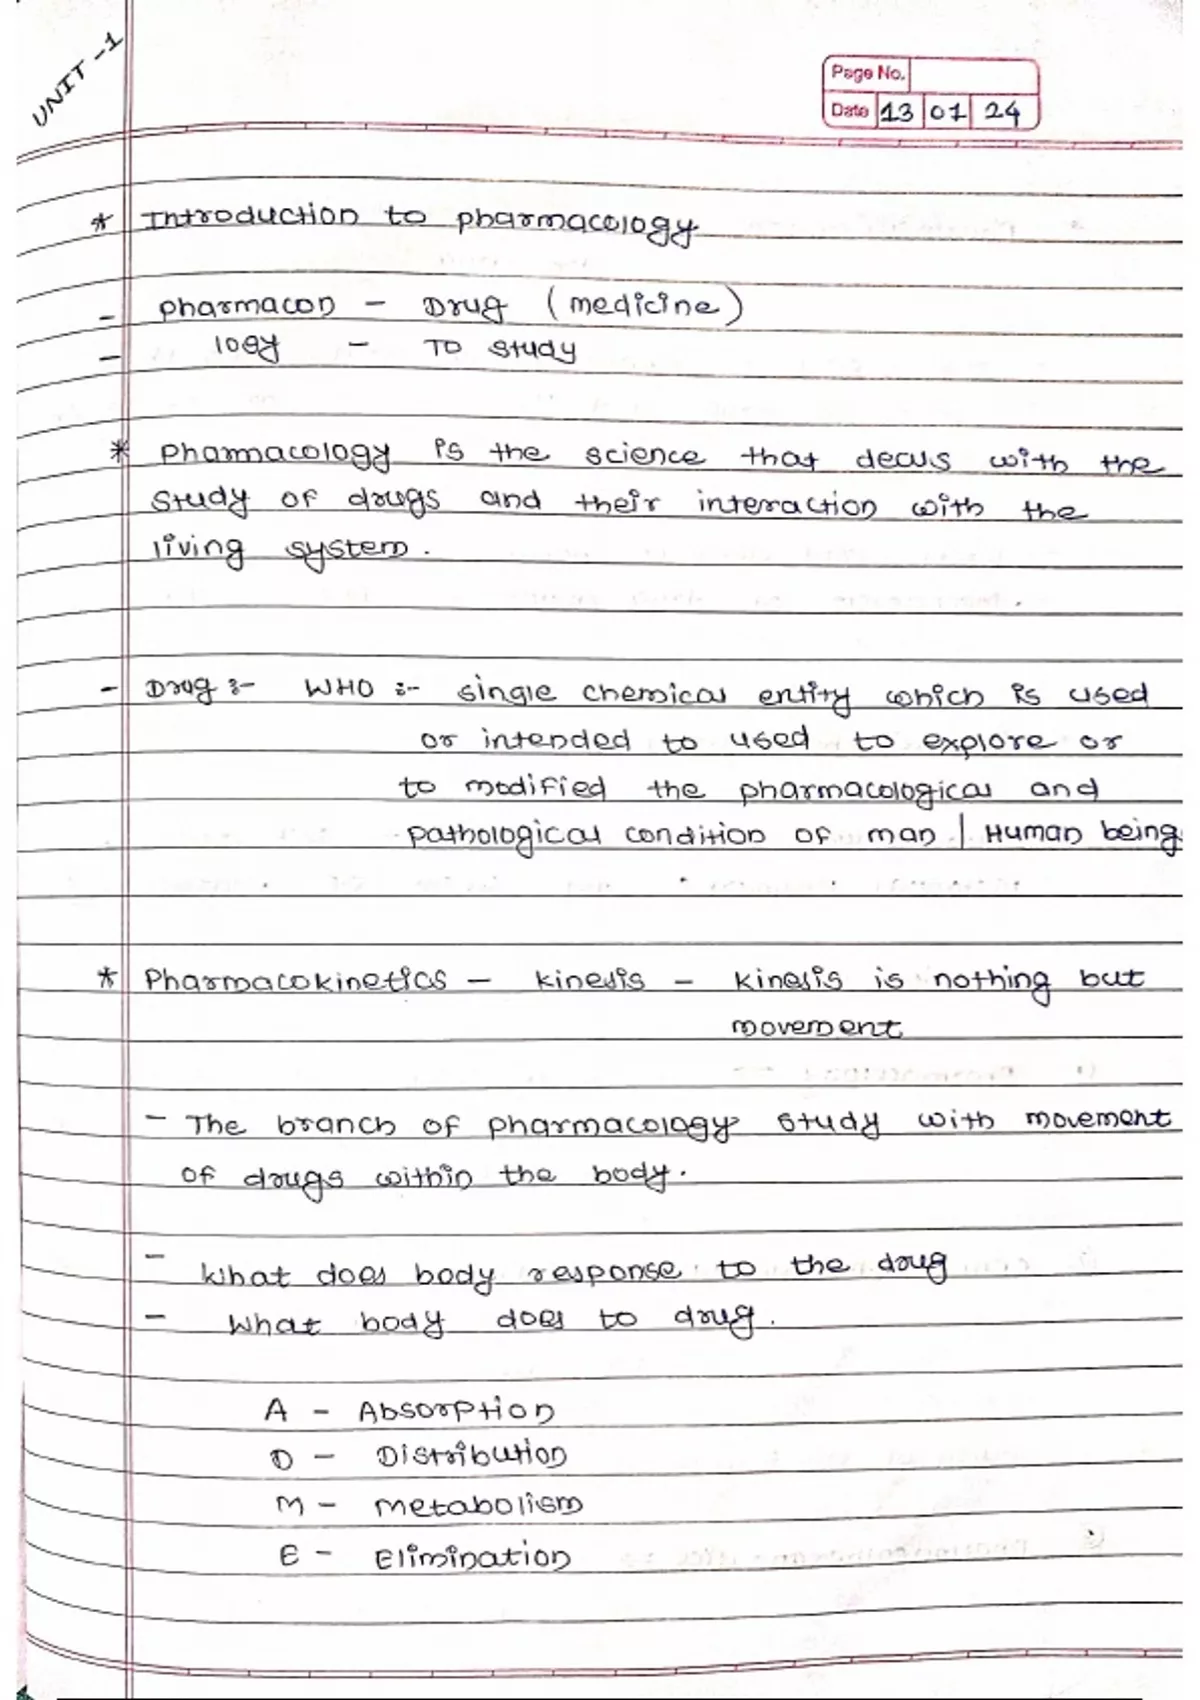 UNIT-1
Page No.
Date 13 01 24
* Introduction to pharmacology
- pharmacon - Drug (medicine)
- logy - To study
* Pharmacology is the science that deals with the
study of drugs and their interaction with the
living system.
- Drug :- WHO :- single chemical entity which is used
or intended to used to explore or
to modified the pharmacological and
pathological condition of man | Human being.
* Pharmacokinetics - kinesis - kinesis is nothing but
movement
- The branch of pharmacology study with movement
of drugs within the body.
- What does body response to the drug
- What body does to drug.
A - Absorption
D - Distribution
M - Metabolism
E - Elimination